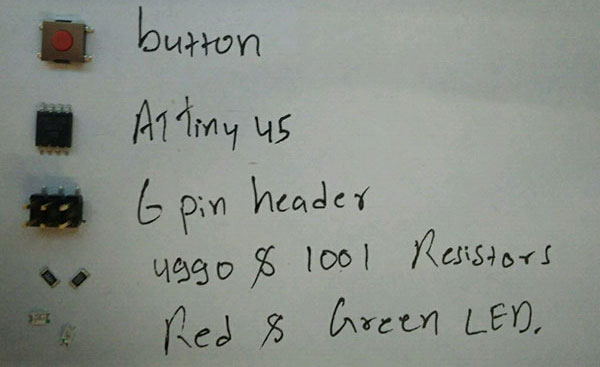 button
ATTiny 45
6 pin header
4990 & 1001 Resistors
Red & Green LED.